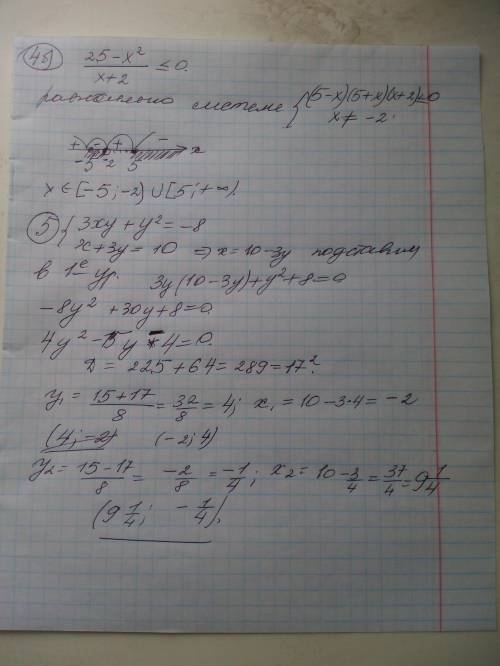 4б) (25-x²)/(x+2) ≤ 0.
равносильно системе { (5-x)(5+x)(x+2) ≤ 0
x ≠ -2.
+ - + - x
-5 -2 5
x ∈ [-5; -2) ∪ [5; +∞).
5) { 3xy + y² = -8
x + 3y = 10 ⇒ x = 10 - 3y подставим
в 1е ур. 3y(10 - 3y) + y² + 8 = 0
-8y² + 30y + 8 = 0
4y² - 15y - 4 = 0.
D = 225 + 64 = 289 = 17².
y₁ = (15+17)/8 = 32/8 = 4; x₁ = 10 - 3·4 = -2
(4; -2) (-2; 4)
y₂ = (15-17)/8 = -2/8 = -1/4; x₂ = 10 - 3/4 = 37/4 = 9 1/4
(9 1/4; -1/4).